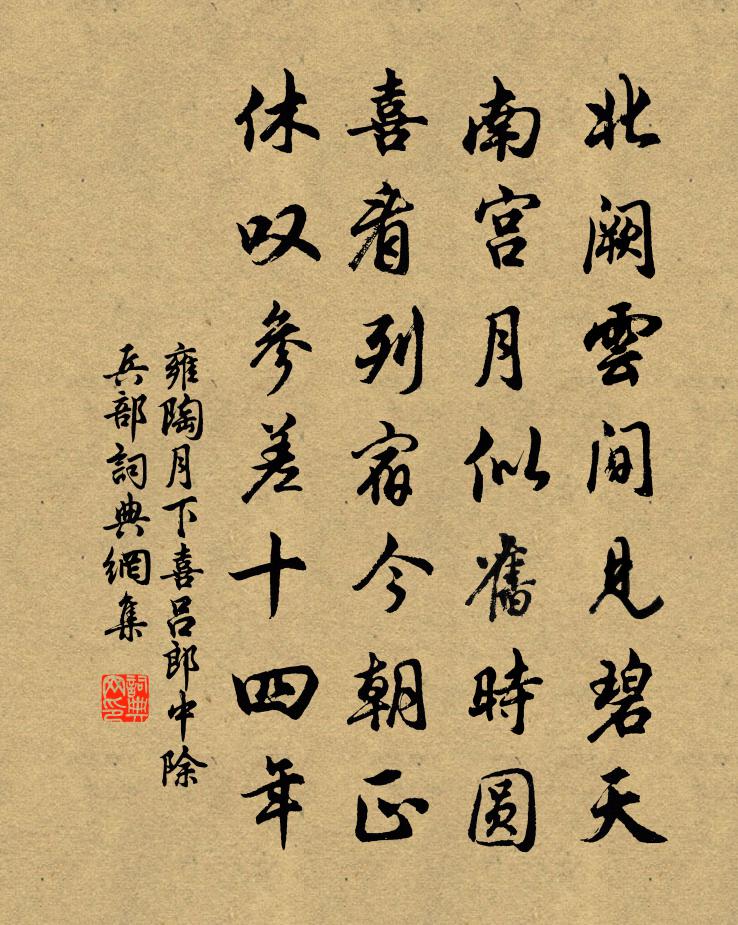 北阙雲间見碧天
南宫月似舊時圆
喜看列宿今朝正
休叹參差十四年
雍陶月下喜吕郎中除
兵部詞典網集
詞典